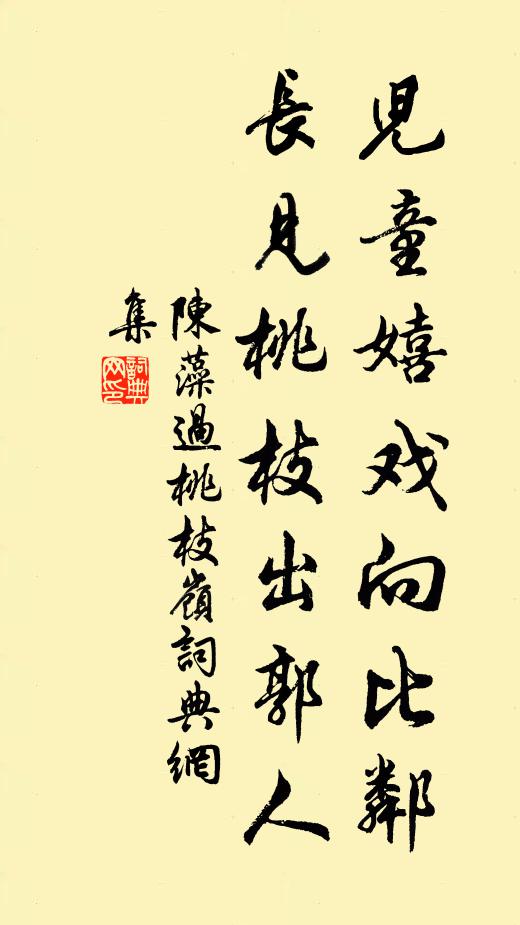 児童嬉戏向比鄰
長見桃枝出郭人
陳藻過桃枝嶺詞典網
集
詞典
网印